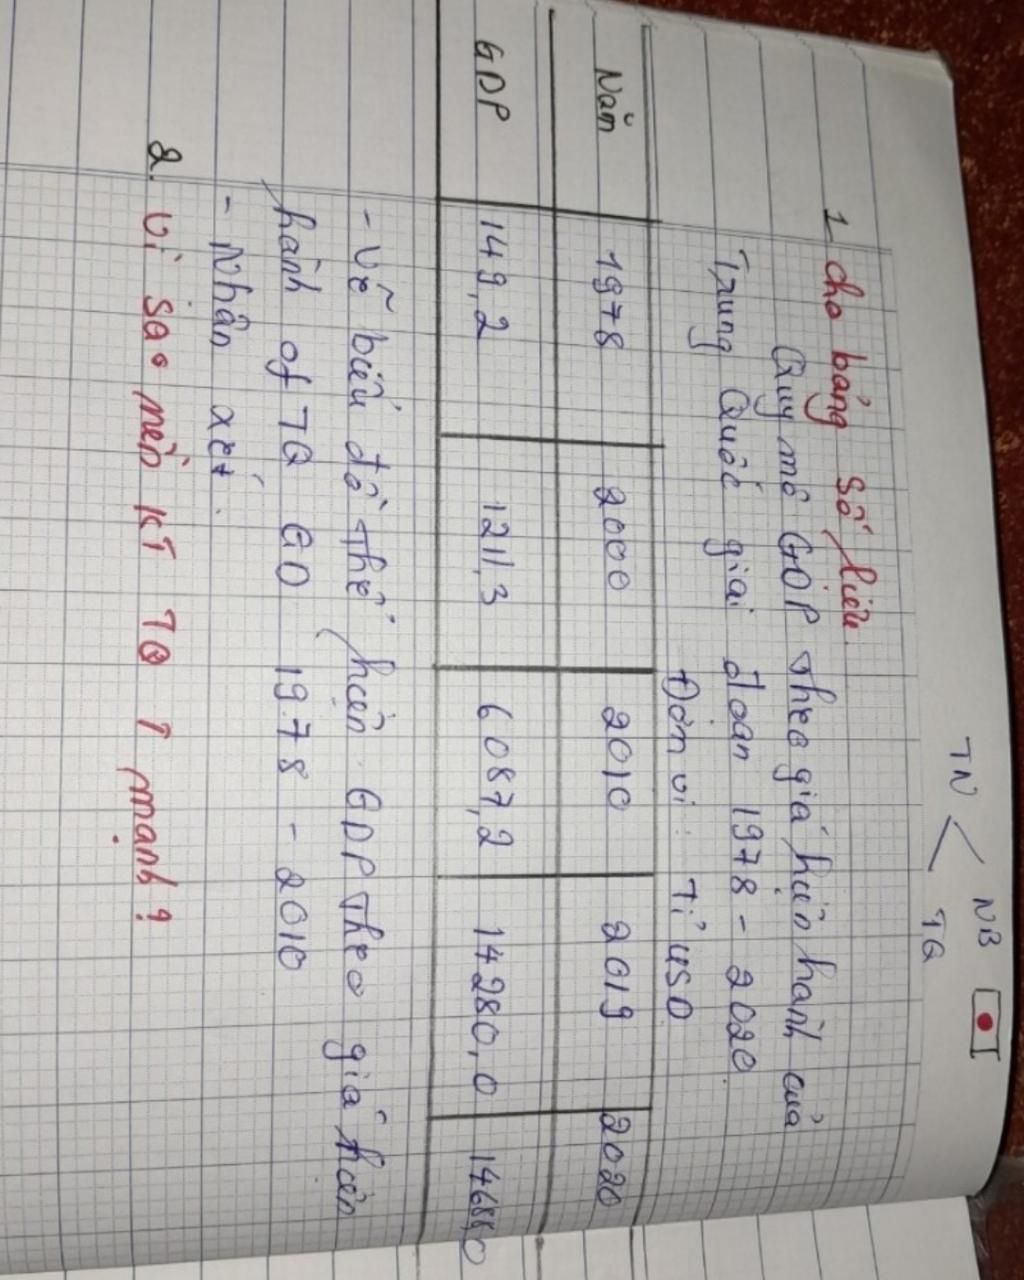 TN < NB
TQ
1. Cho bảng số liệu
Quy mô GDP theo giá hiện hành của
Trung Quốc giai đoạn 1978 - 2020
Đơn vị: Tỉ USD
Năm 1978 2000 2010 2019 2020
GDP 149,2 1211,3 6087,2 14280,0 14688,0
- Vẽ biểu đồ thể hiện GDP theo giá hiện
hành of TQ GĐ 1978 - 2010
- Nhận xét.
2. Vì sao nền KT TQ ↑ mạnh?